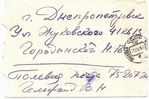 г. Днепропетровск
ул. Жуковского 41 кв 12
Городынского Н. В.
Полевая почта 75207
Гельфанд В. Н.